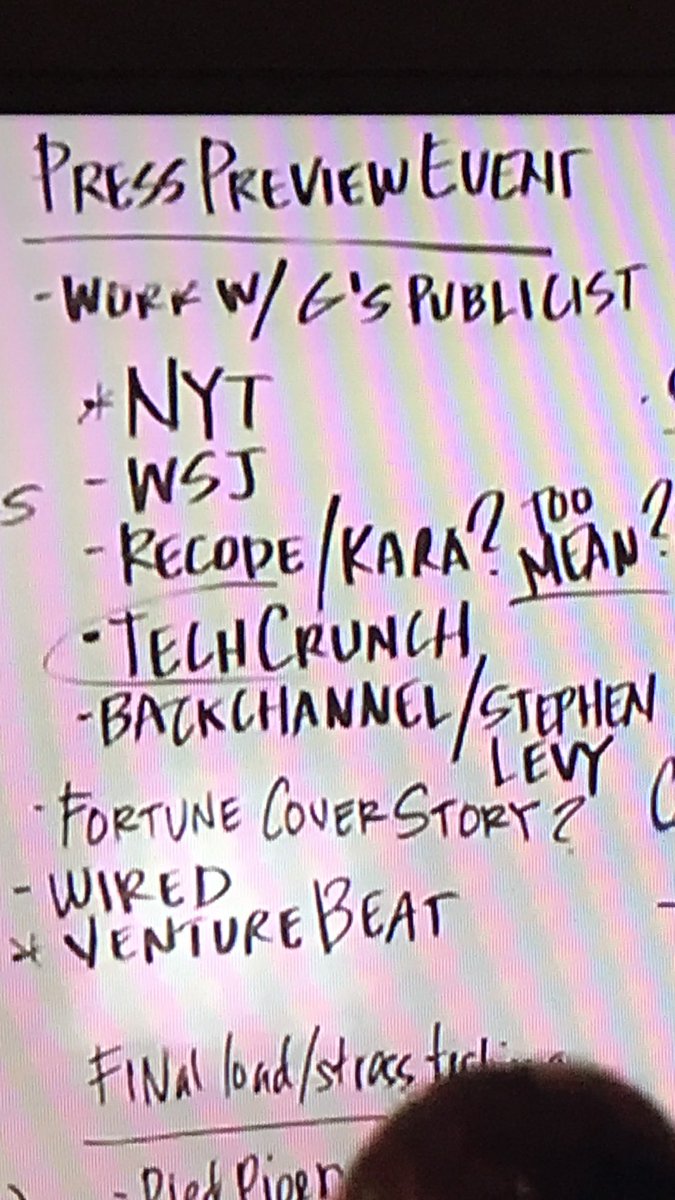 PRESS PREVIEW EVENT
- WORK W/ G'S PUBLICIST
* NYT
- WSJ
S
- RECODE/KARA? TOO MEAN?
- TECHCRUNCH
- BACKCHANNEL/STEPHEN
LEVY
- FORTUNE COVER STORY?
- WIRED
* VENTUREBEAT
FINAL load/stress
- Pied Piper